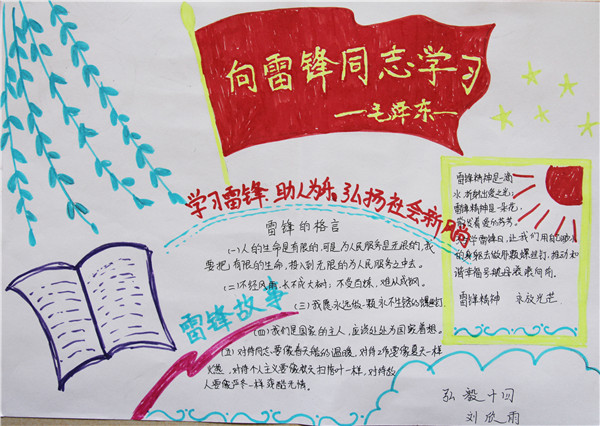 向雷锋同志学习
——毛泽东——
学习雷锋、助人为乐、弘扬社会新风尚
雷锋的格言
(一)人的生命是有限的,可是为人民服务是无限的,我
要把有限的生命,投入到无限的为人民服务之中去。
(二)不经风雨,长不成大树;不受百炼,难以成钢。
(三)我愿永远做一颗永不生锈的螺丝钉。
(四)我们是国家的主人,应该处处为国家着想。
(五)对待同志要像春天般的温暖,对待工作要像夏天一样
火热,对待个人主义要像秋天扫落叶一样,对待敌
人要像严冬一样残酷无情。
雷锋故事
雷锋精神是一滴
水,折射出爱之光;
雷锋精神是一朵花,
散发着爱的芬芳。
学雷锋日,让我们用
的身躯去做那颗螺丝钉,推动和
谐幸福号
雷锋精神 永放光芒
弘毅十四
刘欣雨